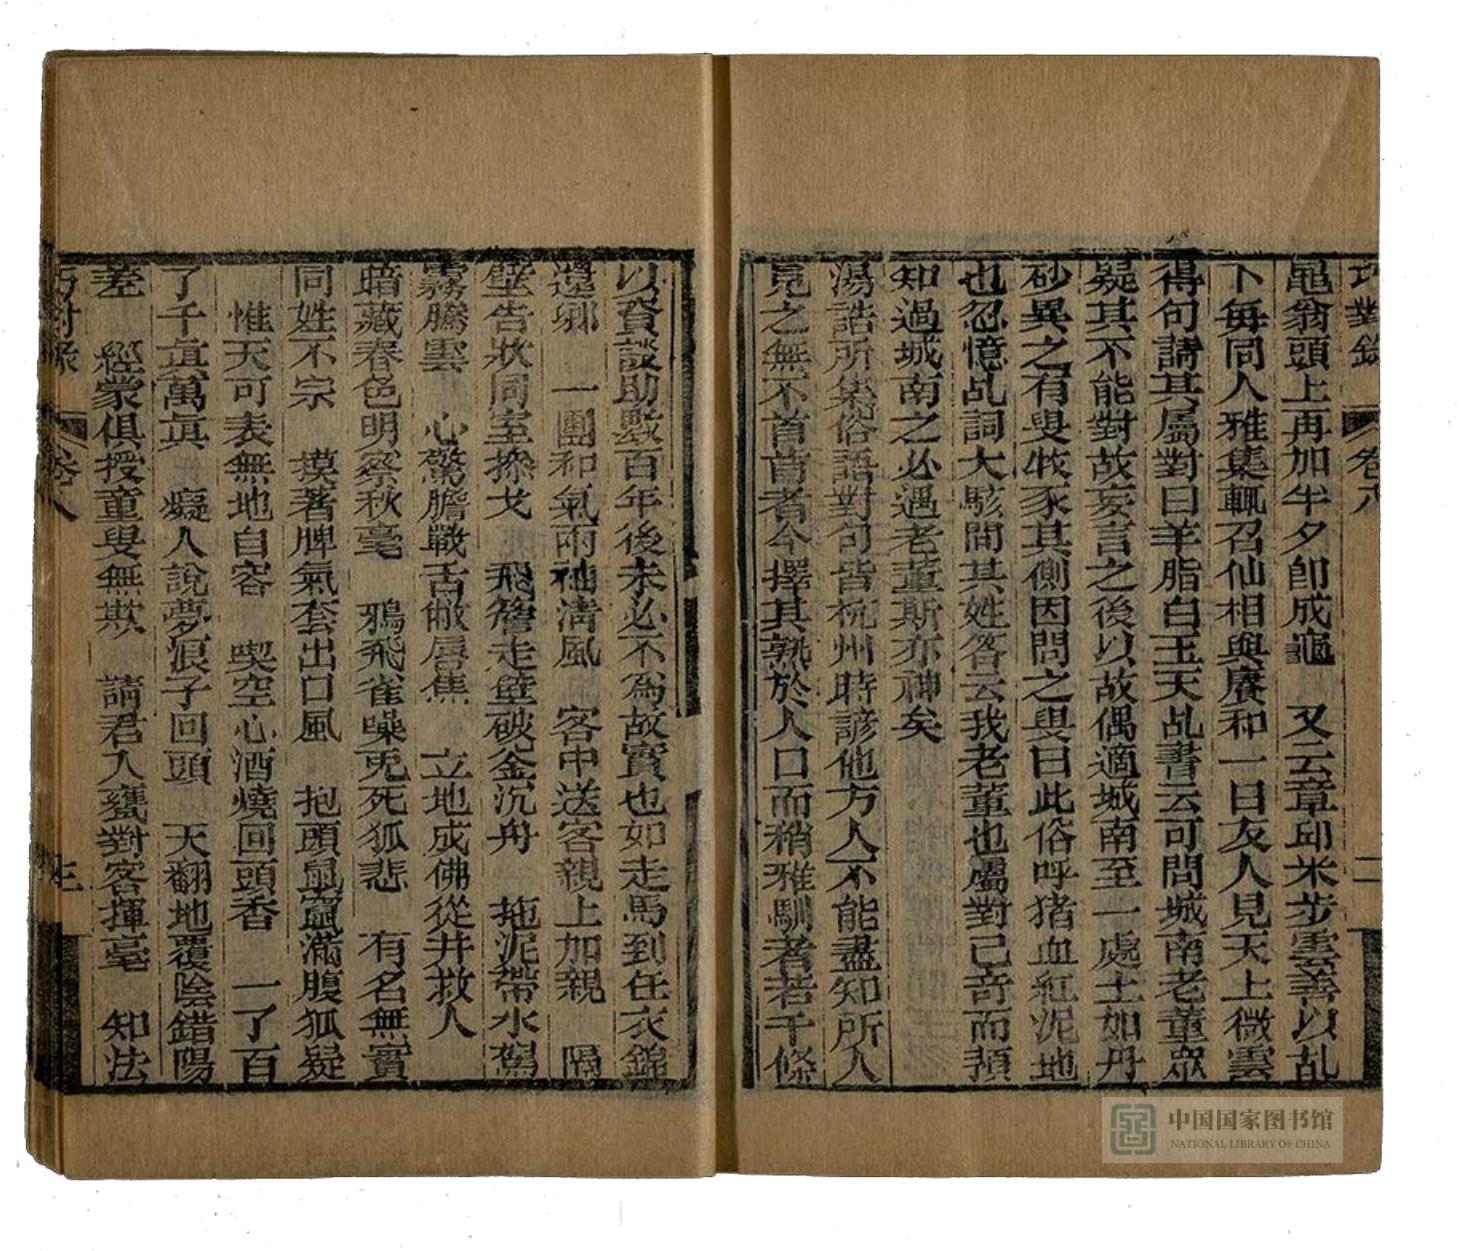 巧對錄 卷八 二
黽翁頭上再加半夕卽成鼆 又云章邱米步雲善以乩
卜每同人雅集輒召仙相與賡和一日友人見天上微雲
得句請其屬對曰羊脂白玉天乩書云可問城南老董眾
疑其不能對故妄言之後以故偶適城南至一處土如丹
砂異之有叟牧豕其側因問之叟曰此俗呼猪血紅泥地
也忽憶乩詞大駭問其姓答云我老董也屬對已奇而預
知過城南之必遇老董斯亦神矣
湯誥所集俗語對句皆杭州時諺他方人不能盡知所人
見之無不首肯者今擇其孰於人口而稍雅馴者若干條
以資談助數百年後未必不為故實也如走馬到任衣錦
還鄉 一團和氣兩袖淸風 客中送客親上加親 隔
壁告狀同室操戈 飛簷走壁破釜沉舟 拖泥帶水駕
霧騰雲 心驚膽戰舌敝唇焦 立地成佛從井救人
暗藏春色明察秋毫 鴉飛雀噪兎死狐悲 有名無實
同姓不宗 摸著脾氣套出口風 抱頭鼠竄滿腹狐疑
惟天可表無地自容 喫空心酒燒回頭香 一了百
了千眞萬眞 癡人說夢浪子回頭 天翻地覆陰錯陽
差 經蒙俱授童叟無欺 請君入甕對客揮毫 知法
巧對錄 卷八 三
中国国家图书馆
NATIONAL LIBRARY OF CHINA